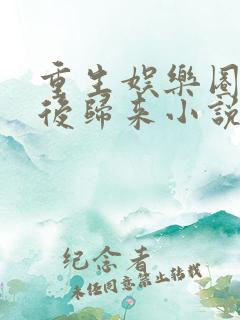 重生娛樂圈
後歸来小說
纪念者
未经同意禁止转载